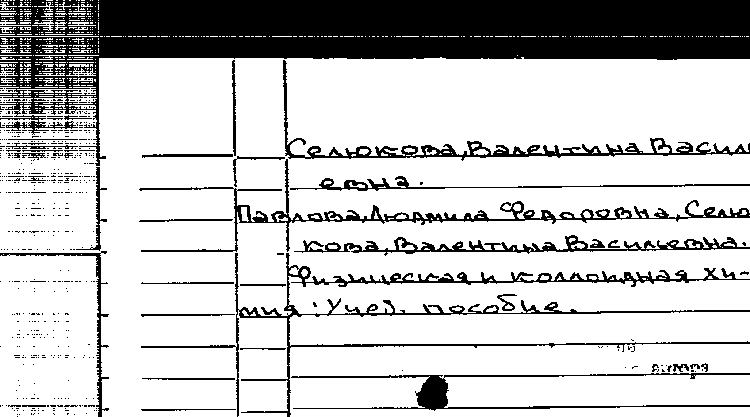 Селюкова, Валентина Василь
евна.
Павлова, Людмила Федоровна, Селю
кова, Валентина Васильевна.
Физическая и коллоидная хи-
мия : Учеб. пособие.
автора